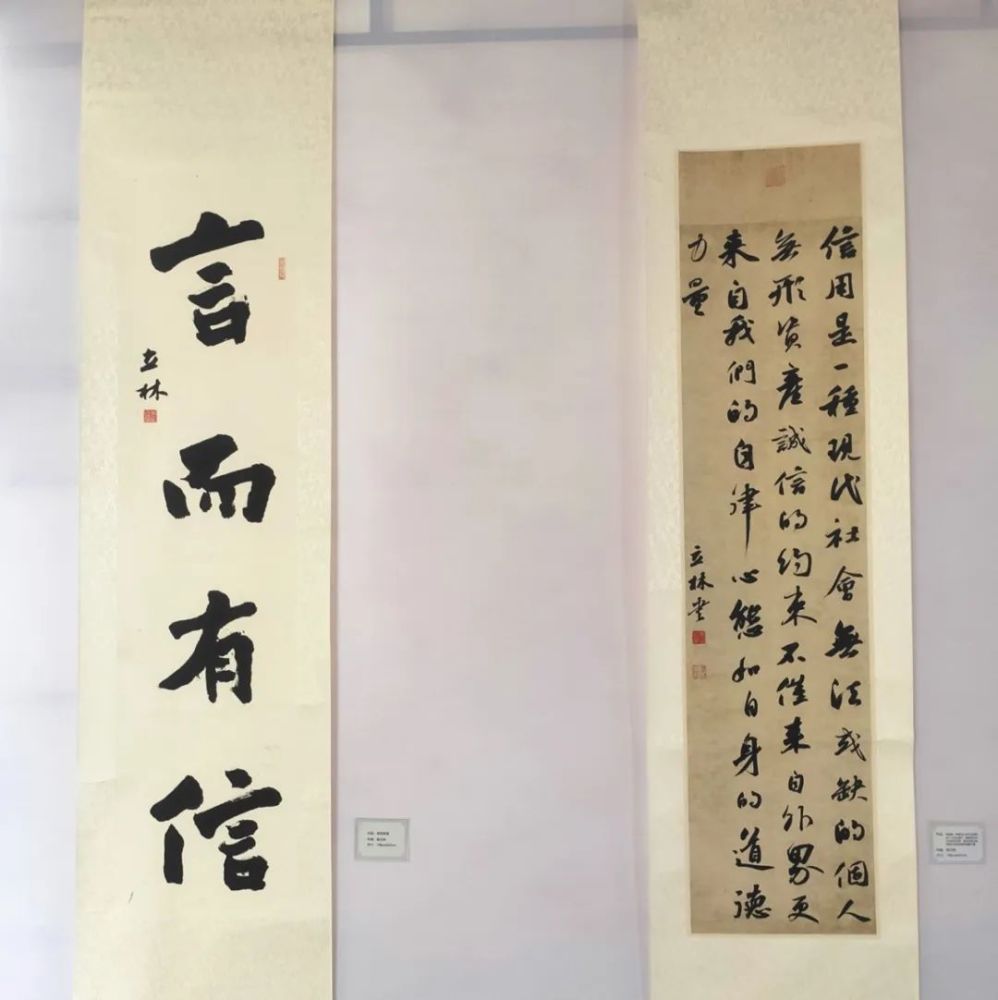 言而有信
立林
信用是一種現代社會無法或缺的個人
無形資產誠信的約束不僅來自外界更
來自我們的自律心態和自身的道德
力量
立林書